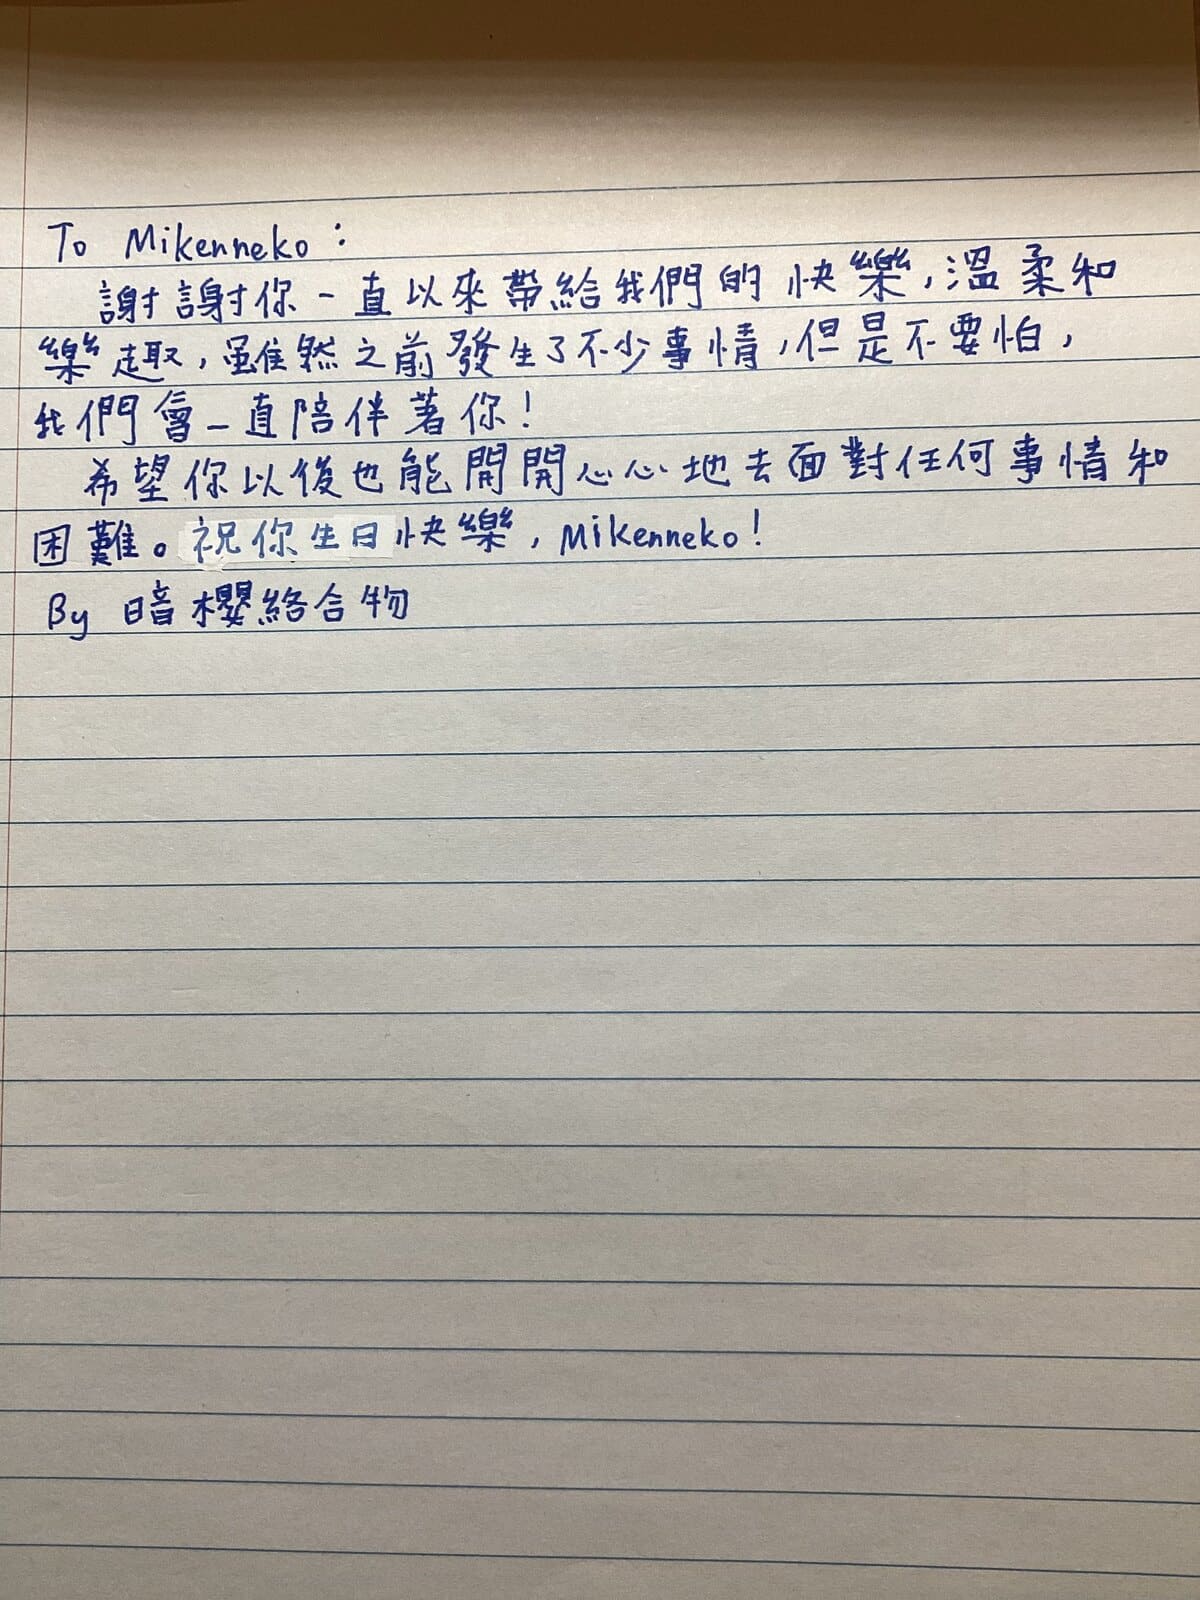 To Mikenneko：
謝謝你一直以來帶給我們的快樂，溫柔和
樂趣，雖然之前發生了不少事情，但是不要怕，
我們會一直陪伴著你！
希望你以後也能開開心心地去面對任何事情和
困難。祝你生日快樂，Mikenneko！
By 暗櫻絡合物